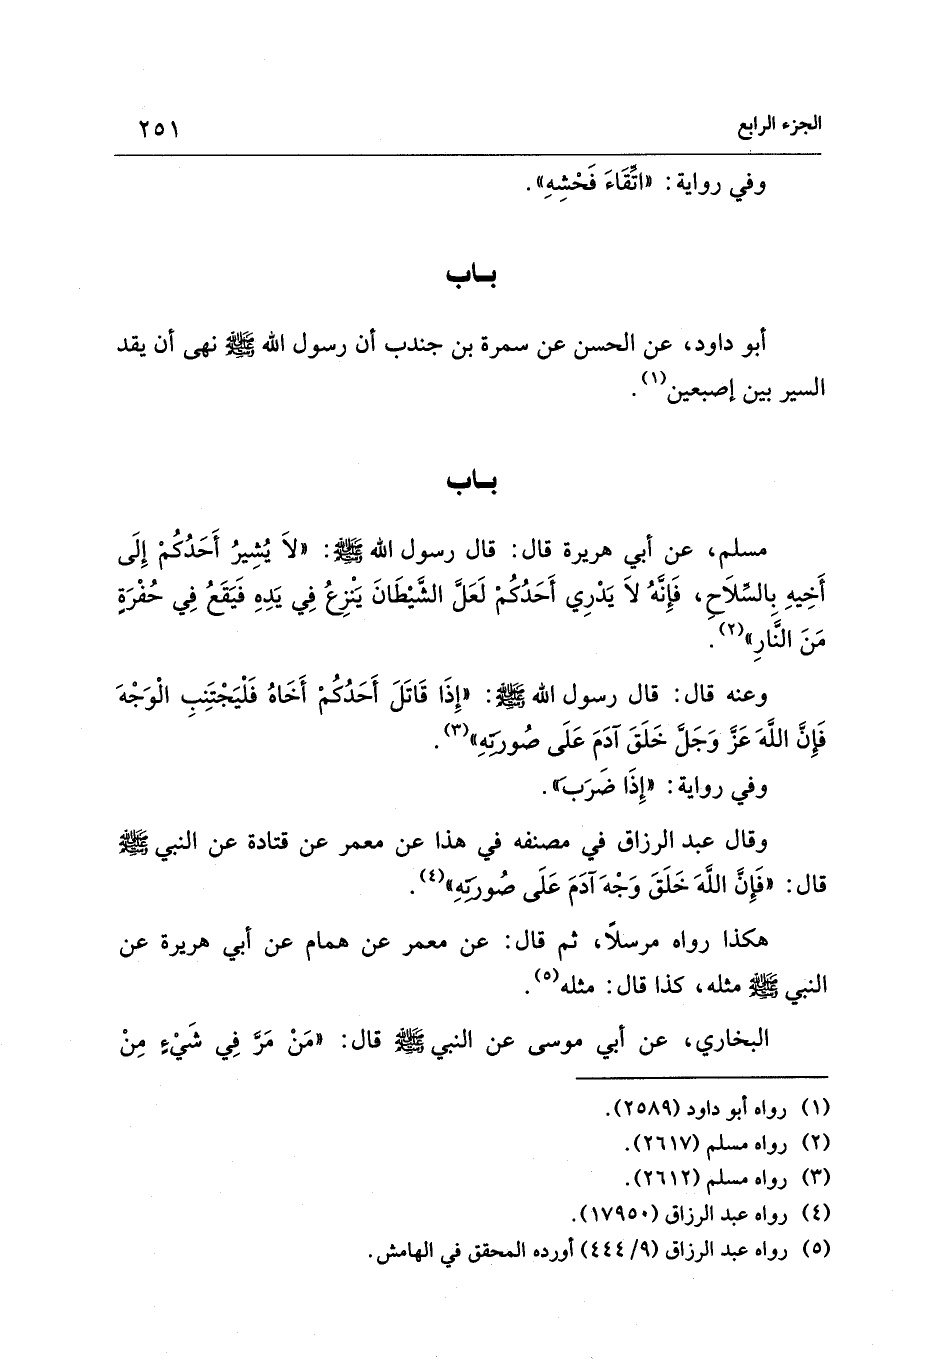 الجزء الرابع ٢٥١
وفي رواية: «اتِّقَاءَ فَحْشِهِ».
بـاب
أبو داود، عن الحسن عن سمرة بن جندب أن رسول الله ﷺ نهى أن يقد
السير بين إصبعين(١).
بـاب
مسلم، عن أبي هريرة قال: قال رسول الله ﷺ: «لاَ يُشِيرُ أَحَدُكُمْ إِلَى
أَخِيهِ بِالسِّلَاحِ، فَإِنَّهُ لَا يَدْرِي أَحَدُكُمْ لَعَلَّ الشَّيْطَانَ يَنْزِعُ فِي يَدِهِ فَيَقَعُ فِي حُفْرَةٍ
مَنَ النَّارِ»(٢).
وعنه قال: قال رسول الله ﷺ: «إِذَا قَاتَلَ أَحَدُكُمْ أَخَاهُ فَلْيَجْتَنِبِ الْوَجْهَ
فَإِنَّ اللَّهَ عَزَّ وَجَلَّ خَلَقَ آدَمَ عَلَى صُورَتِهِ»(٣).
وفي رواية: «إِذَا ضَرَبَ».
وقال عبد الرزاق في مصنفه في هذا عن معمر عن قتادة عن النبي ﷺ
قال: «فَإِنَّ اللَّهَ خَلَقَ وَجْهَ آدَمَ عَلَى صُورَتِهِ»(٤).
هكذا رواه مرسلاً، ثم قال: عن معمر عن همام عن أبي هريرة عن
النبي ﷺ مثله، كذا قال: مثله(٥).
البخاري، عن أبي موسى عن النبي ﷺ قال: «مَنْ مَرَّ فِي شَيْءٍ مِنْ
(١) رواه أبو داود (٢٥٨٩).
(٢) رواه مسلم (٢٦١٧).
(٣) رواه مسلم (٢٦١٢).
(٤) رواه عبد الرزاق (١٧٩٥٠).
(٥) رواه عبد الرزاق (٩/ ٤٤٤) أورده المحقق في الهامش.